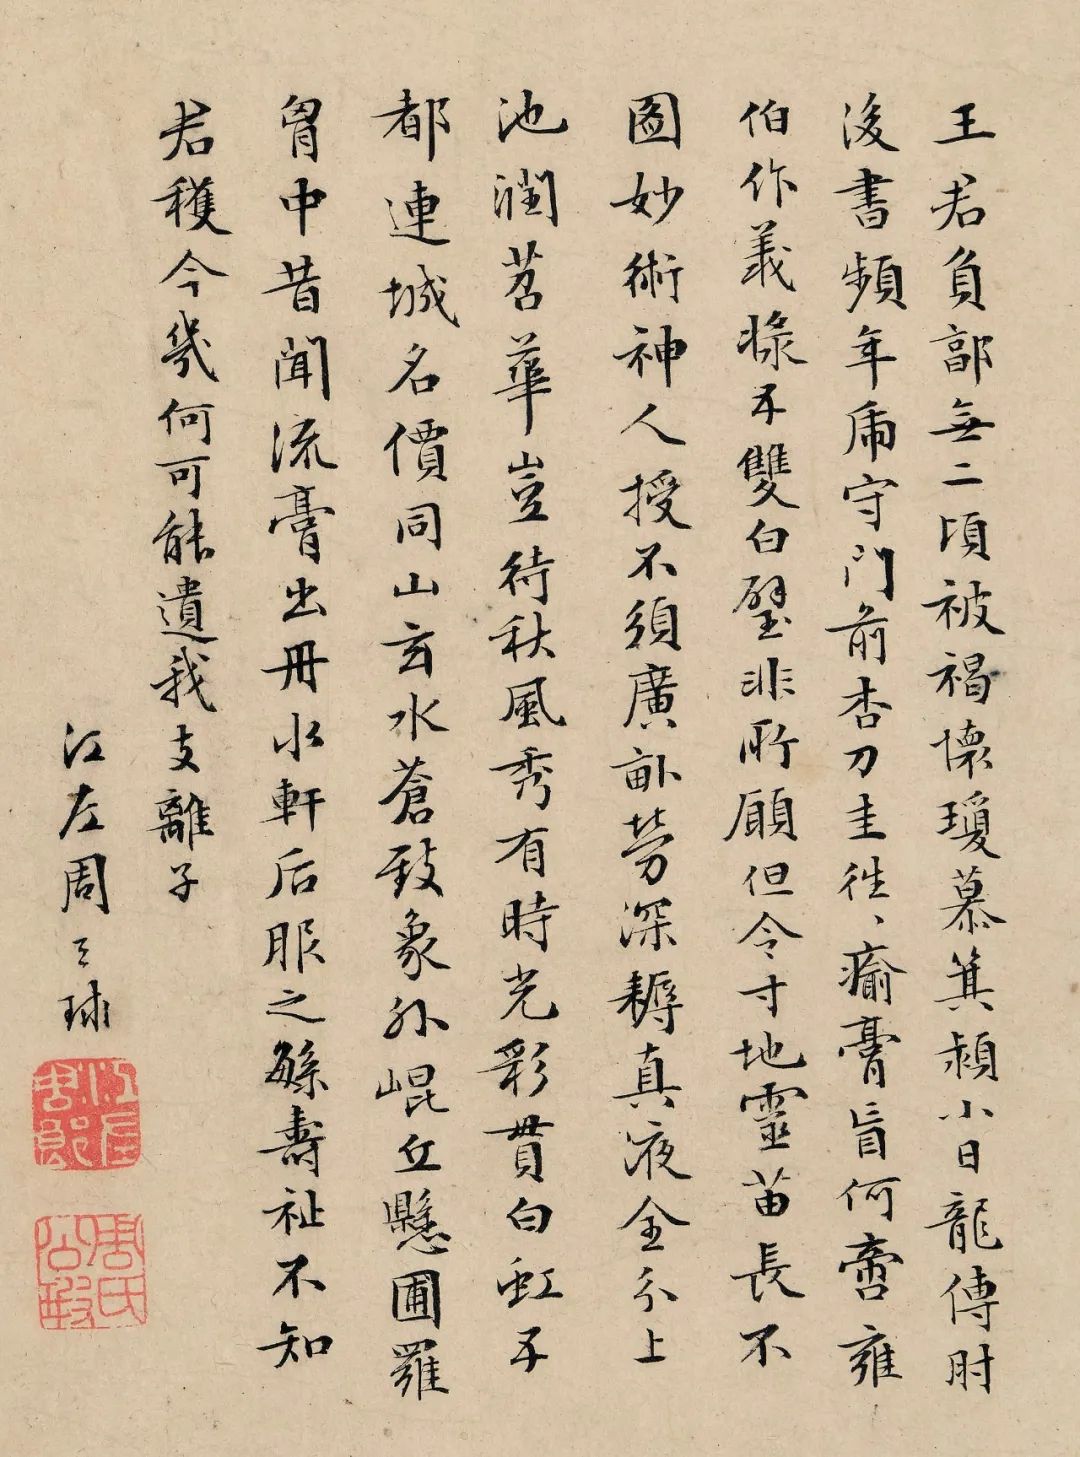 王君負郭無二頃被褐懷瓊慕箕潁小日龍傳肘
後書頻年虎守門前杏刀圭往、瘉膏肓何啻雍
伯作義漿不雙白璧非所願但令寸地靈苗長不
圖妙術神人授不須廣畝勞深耨真液全分上
池潤苕華豈待秋風秀有時光彩貫白虹不
都連城名價同山玄水蒼致象外崐丘懸圃羅
胷中昔聞流膏出丹水軒后服之緐壽祉不知
君穫今幾何可能遺我支離子
江左周天球
江左周郎
周氏公瑕